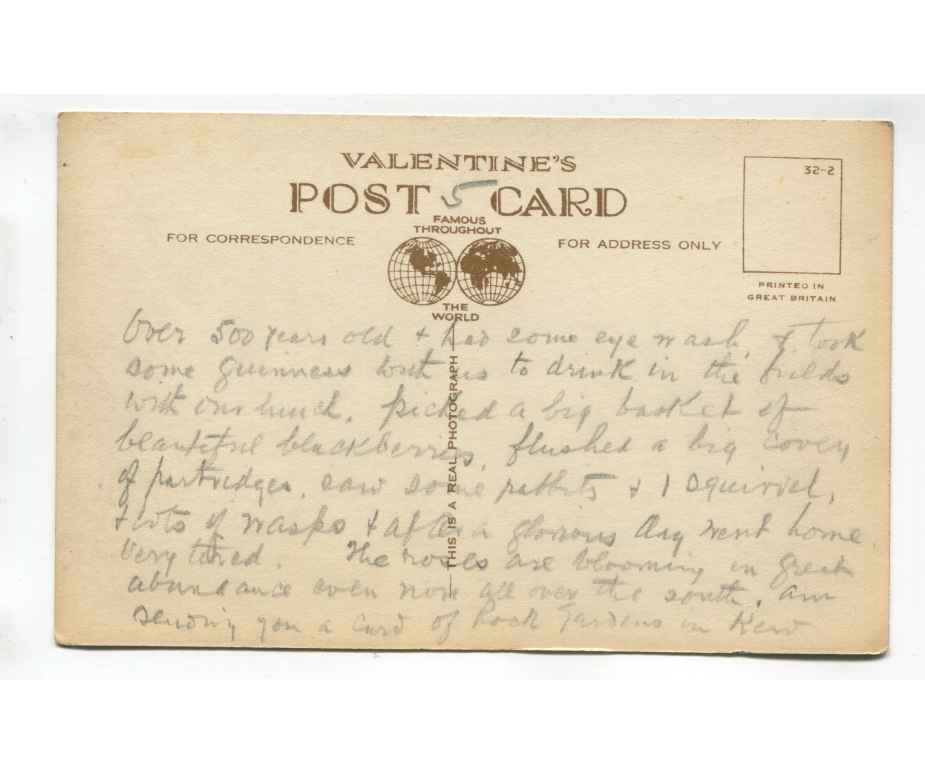 VALENTINE'S
POST 5 CARD
FAMOUS
THROUGHOUT
FOR CORRESPONDENCE
FOR ADDRESS ONLY
THE
WORLD
32-2
PRINTED IN
GREAT BRITAIN
THIS IS A REAL PHOTOGRAPH
Over 500 years old & had some eye wash, & took
some guinness with us to drink in the fields
with our lunch. picked a big basket of
beautiful blackberries, flushed a big covey
of partridges, saw some rabbits & 1 squirrel,
& lots of wasps & after a glorious day went home
very tired. The roses are blooming in great
abundance even now all over the south. am
sending you a card of Rock Gardens in Kew